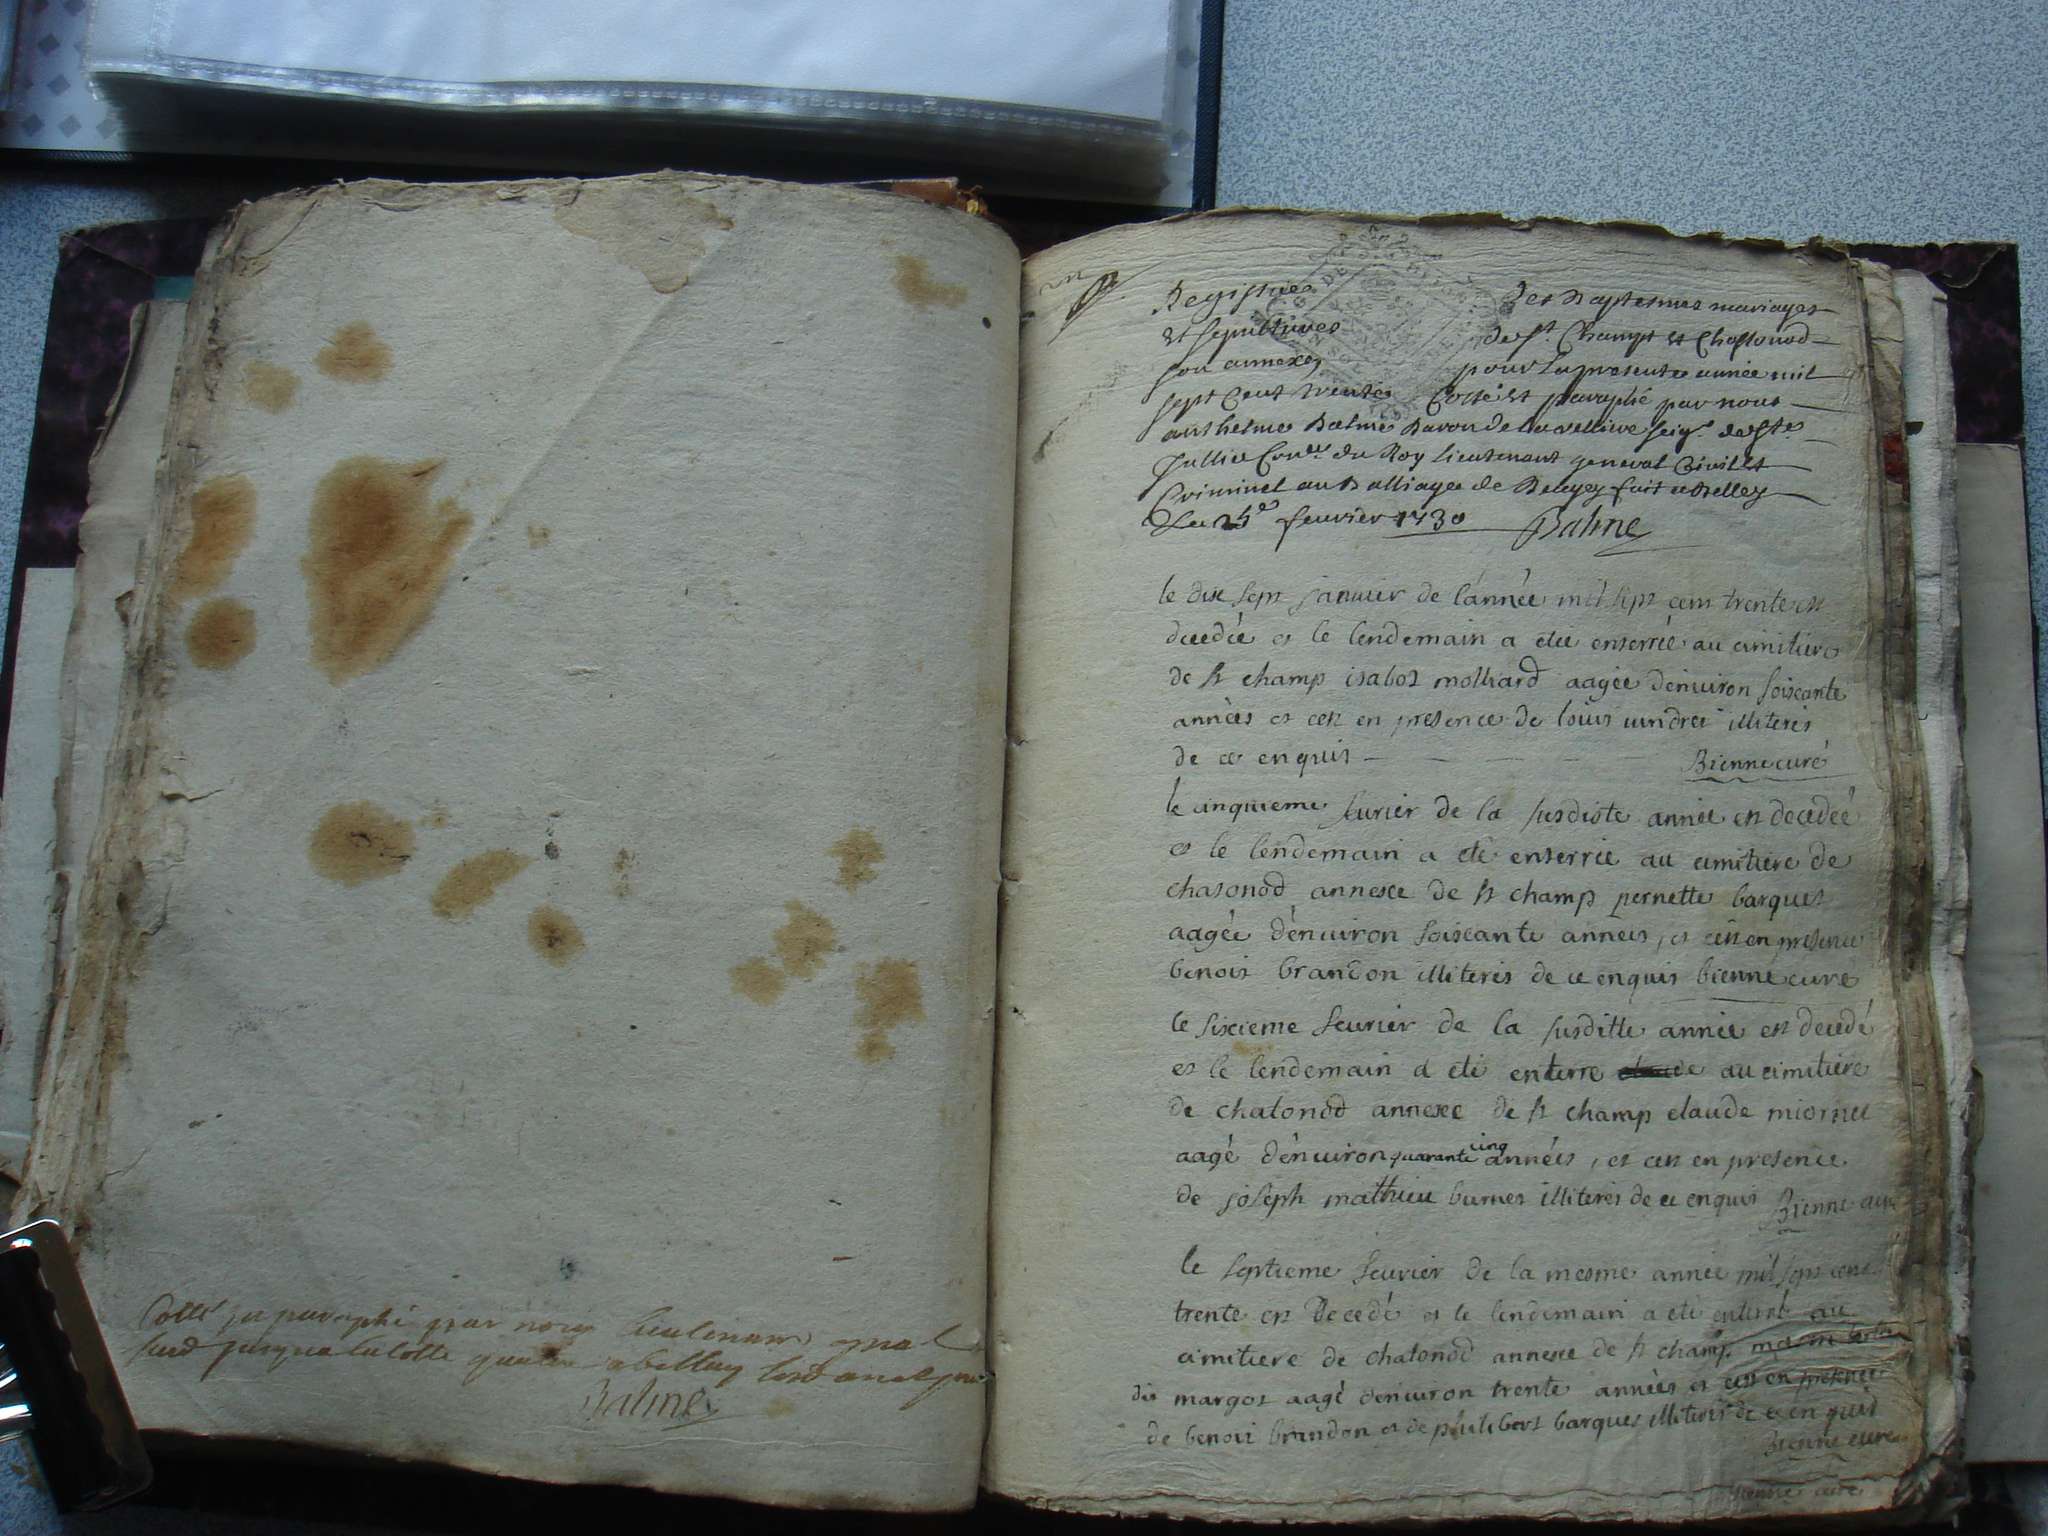 Cotté et paraphé par nous lieutenant gnal
susd jusqua la cotte quatre a belley
Balme
Registre des Baptesmes mariages
et sepultures de st. Champt et Chastonod
son annexe, pour la presente année mil
sept Cent trente Cotté et paraphé par nous
anthelme Balme Baron de seigr. de ste.
Jullie Coner. du Roy lieutenant general Civil et
Criminel au Balliage de Beugey fait a Belley
Le 25e feurier 1730 Balme
le dix sept januier de l'année mil sept cent trente est
decedée et le lendemain a eté enterrée au cimitiere
de st champ isabot molliard aagée d'enuiron soixante
années et cest en presence de louis illiterés
de ce enquis Bienne curé
le cinquieme feurier de la susdiste année est decedée
et le lendemain a eté enterrée au cimitiere de
chatonod annexe de st champ pernette barquet
aagée d'enuiron soixante années, et cest en presence
benoit brandon illiterés de ce enquis bienne curé
le sixieme feurier de la susditte année est decedé
et le lendemain a eté enterre claude au cimitiere
de chatonod annexe de st champ claude miornet
aagé d'enuiron quarante cinq années, et cest en presence
de joseph mathieu burnet illiterés de ce enquis Bienne curé
le septieme feurier de la mesme année mil sept cent
trente est decedé et le lendemain a eté enterré au
cimitiere de chatonod annexe de st champ
dit margot aagé denuiron trente années et cest en presence
de benoit brandon et de philibert barquet illiterés de ce enquis
Bienne curé
Bienne curé